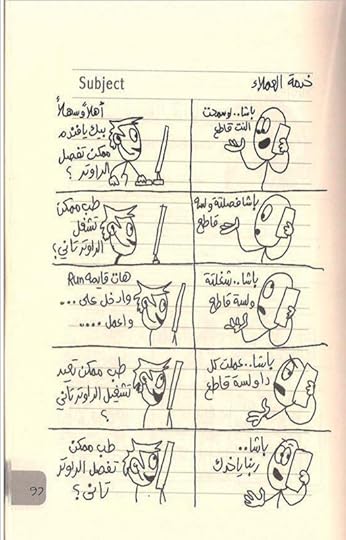 Subject
خدمة العملاء
باشا.. لو سمحت
النت قاطع
أهلاً وسهلاً
بيك يافندم
ممكن تفصل
الراوتر ؟
باشا فصلته ولسه
قاطع
طب ممكن
تشغل
الراوتر تاني ؟
باشا.. شغلتة
ولسة قاطع
هات قايمه Run
وادخل على ...
واعمل ....
باشا.. عملت كل
دا ولسة قاطع
طب ممكن تعيد
تشغيل الراوتر تاني
؟
باشا..
ربنا ياخدك
طب ممكن
تفصل الراوتر
تاني ؟